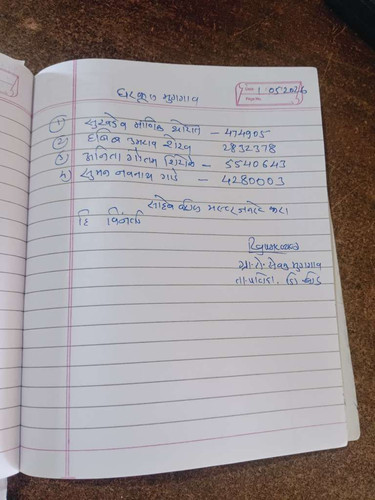 Date 1/05/2026
Page No.
घरकूल मुगगाव
१) सुखदेव माणिक थोरात - 474905
२) हबिब उमराव शेख - 2832378
३) अनिता गौतम शिरोळे - 5540643
४) सुमन नवनाथ गाडे - 4280003
साहेब वरील मस्टर जनरेट करा
हि विनंती
ग्रा. रो. सेवक मुगगाव
ता. पाटोदा, जि बीड